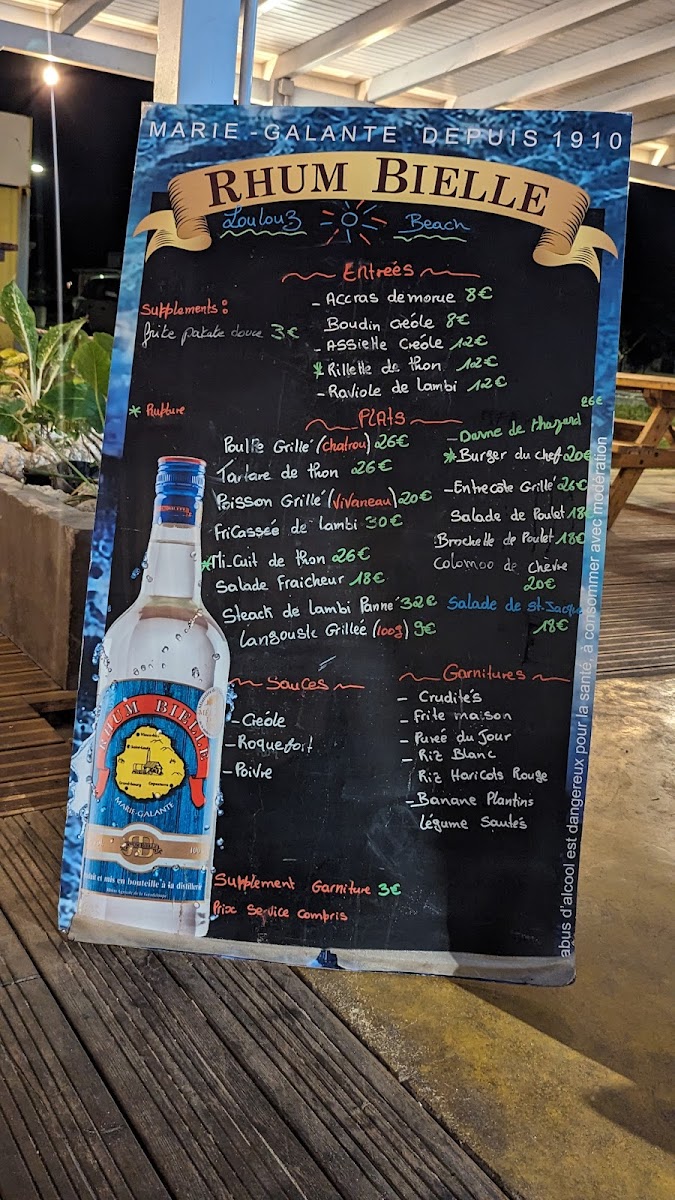 MARIE-GALANTE DEPUIS 1910
RHUM BIELLE
Loulou3 Beach
Entrées
- Accras de morue 8€
- Boudin Créole 8€
- Assiette Créole 12€
* Rillette de thon 10€
- Raviole de lambi 12€
Supplements :
frite patate douce 3€
* Rupture
Plats
Poulpe Grillé (chatrou) 26€
Tartare de thon 26€
Poisson Grillé (Vivaneau) 20€
Fricassée de lambi 30€
* Mi-Cuit de thon 26€
Salade Fraicheur 18€
Steack de lambi Panné 32€
Langouste Grillée (100g) 9€
26€
- Darne de thazard
* Burger du chef 20€
- Entrecôte Grillé 26€
Salade de Poulet 18€
Brochette de Poulet 18€
Colomoo de Chèvre
20€
Salade de St. Jacque
18€
Sauces
- Créole
- Roquefort
- Poivre
Garnitures
- Crudités
- Frite maison
- Pureé du Jour
- Riz Blanc
Riz Haricots Rouge
- Banane Plantins
légume Sautés
Supplement Garniture 3€
Prix Service Compris
RHUM BIELLE
MARIE-GALANTE
et mis en bouteille à la distillerie
abus d'alcool est dangereux pour la santé, à consommer avec modération